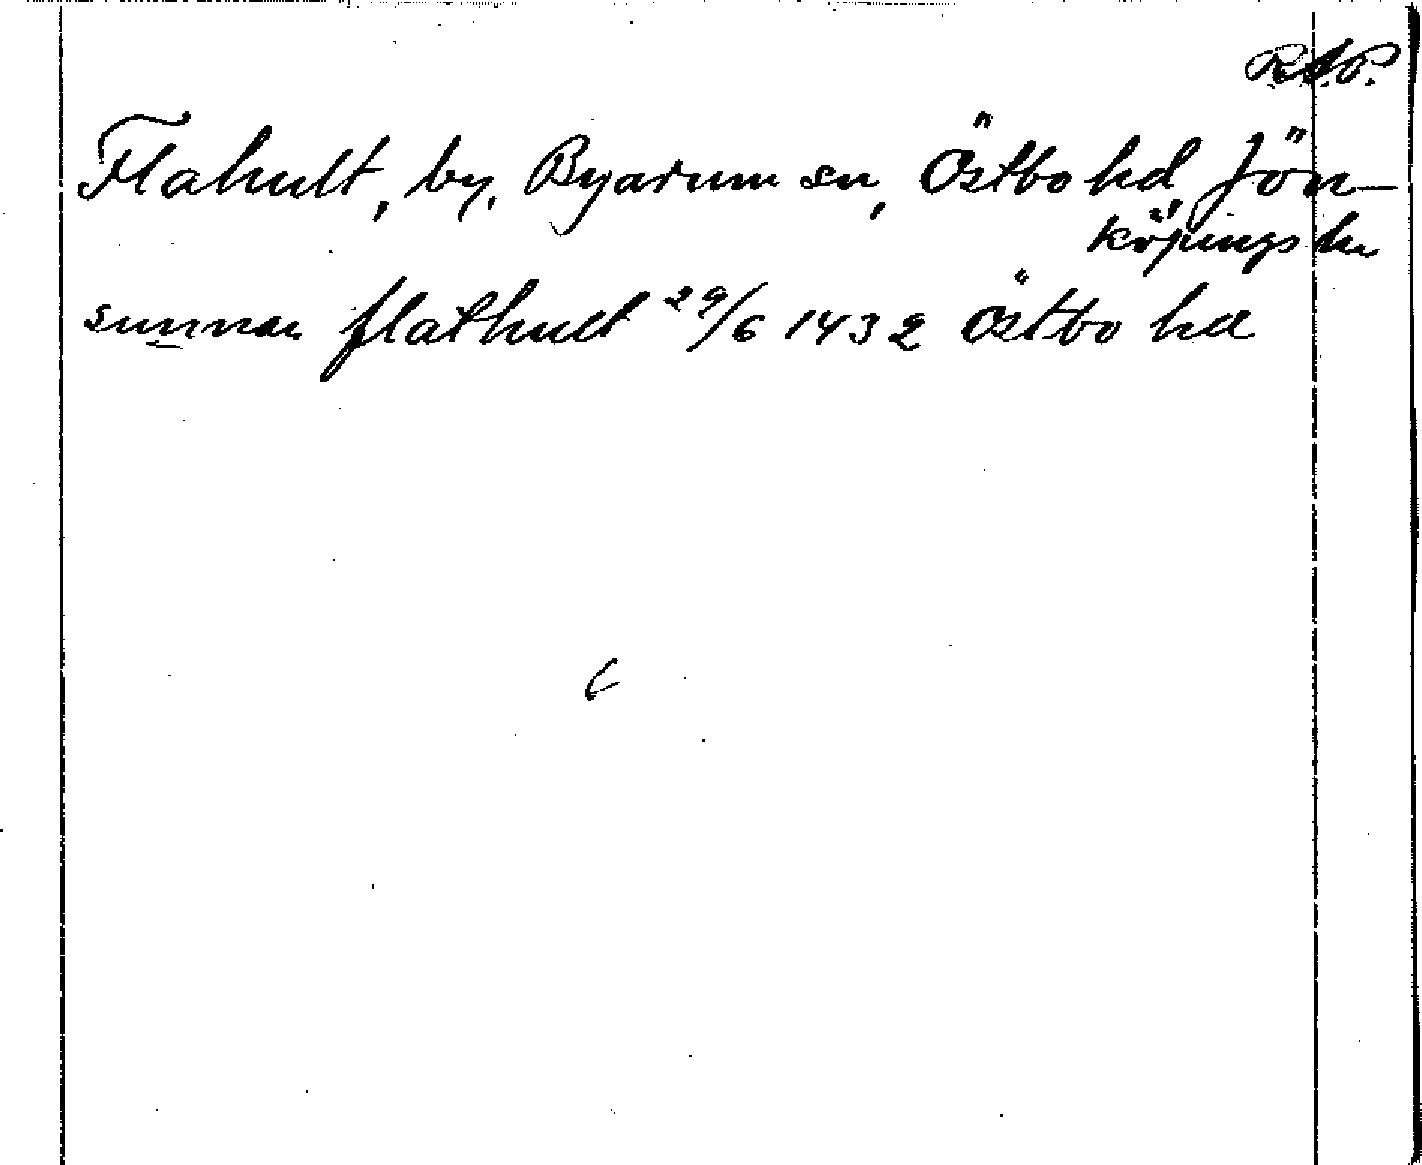 R.A.P.
Flahult, by, Byarum sn, Östbo hd, Jön-
köpings ln
sunnan flathult 29/6 1432 Östbo hd